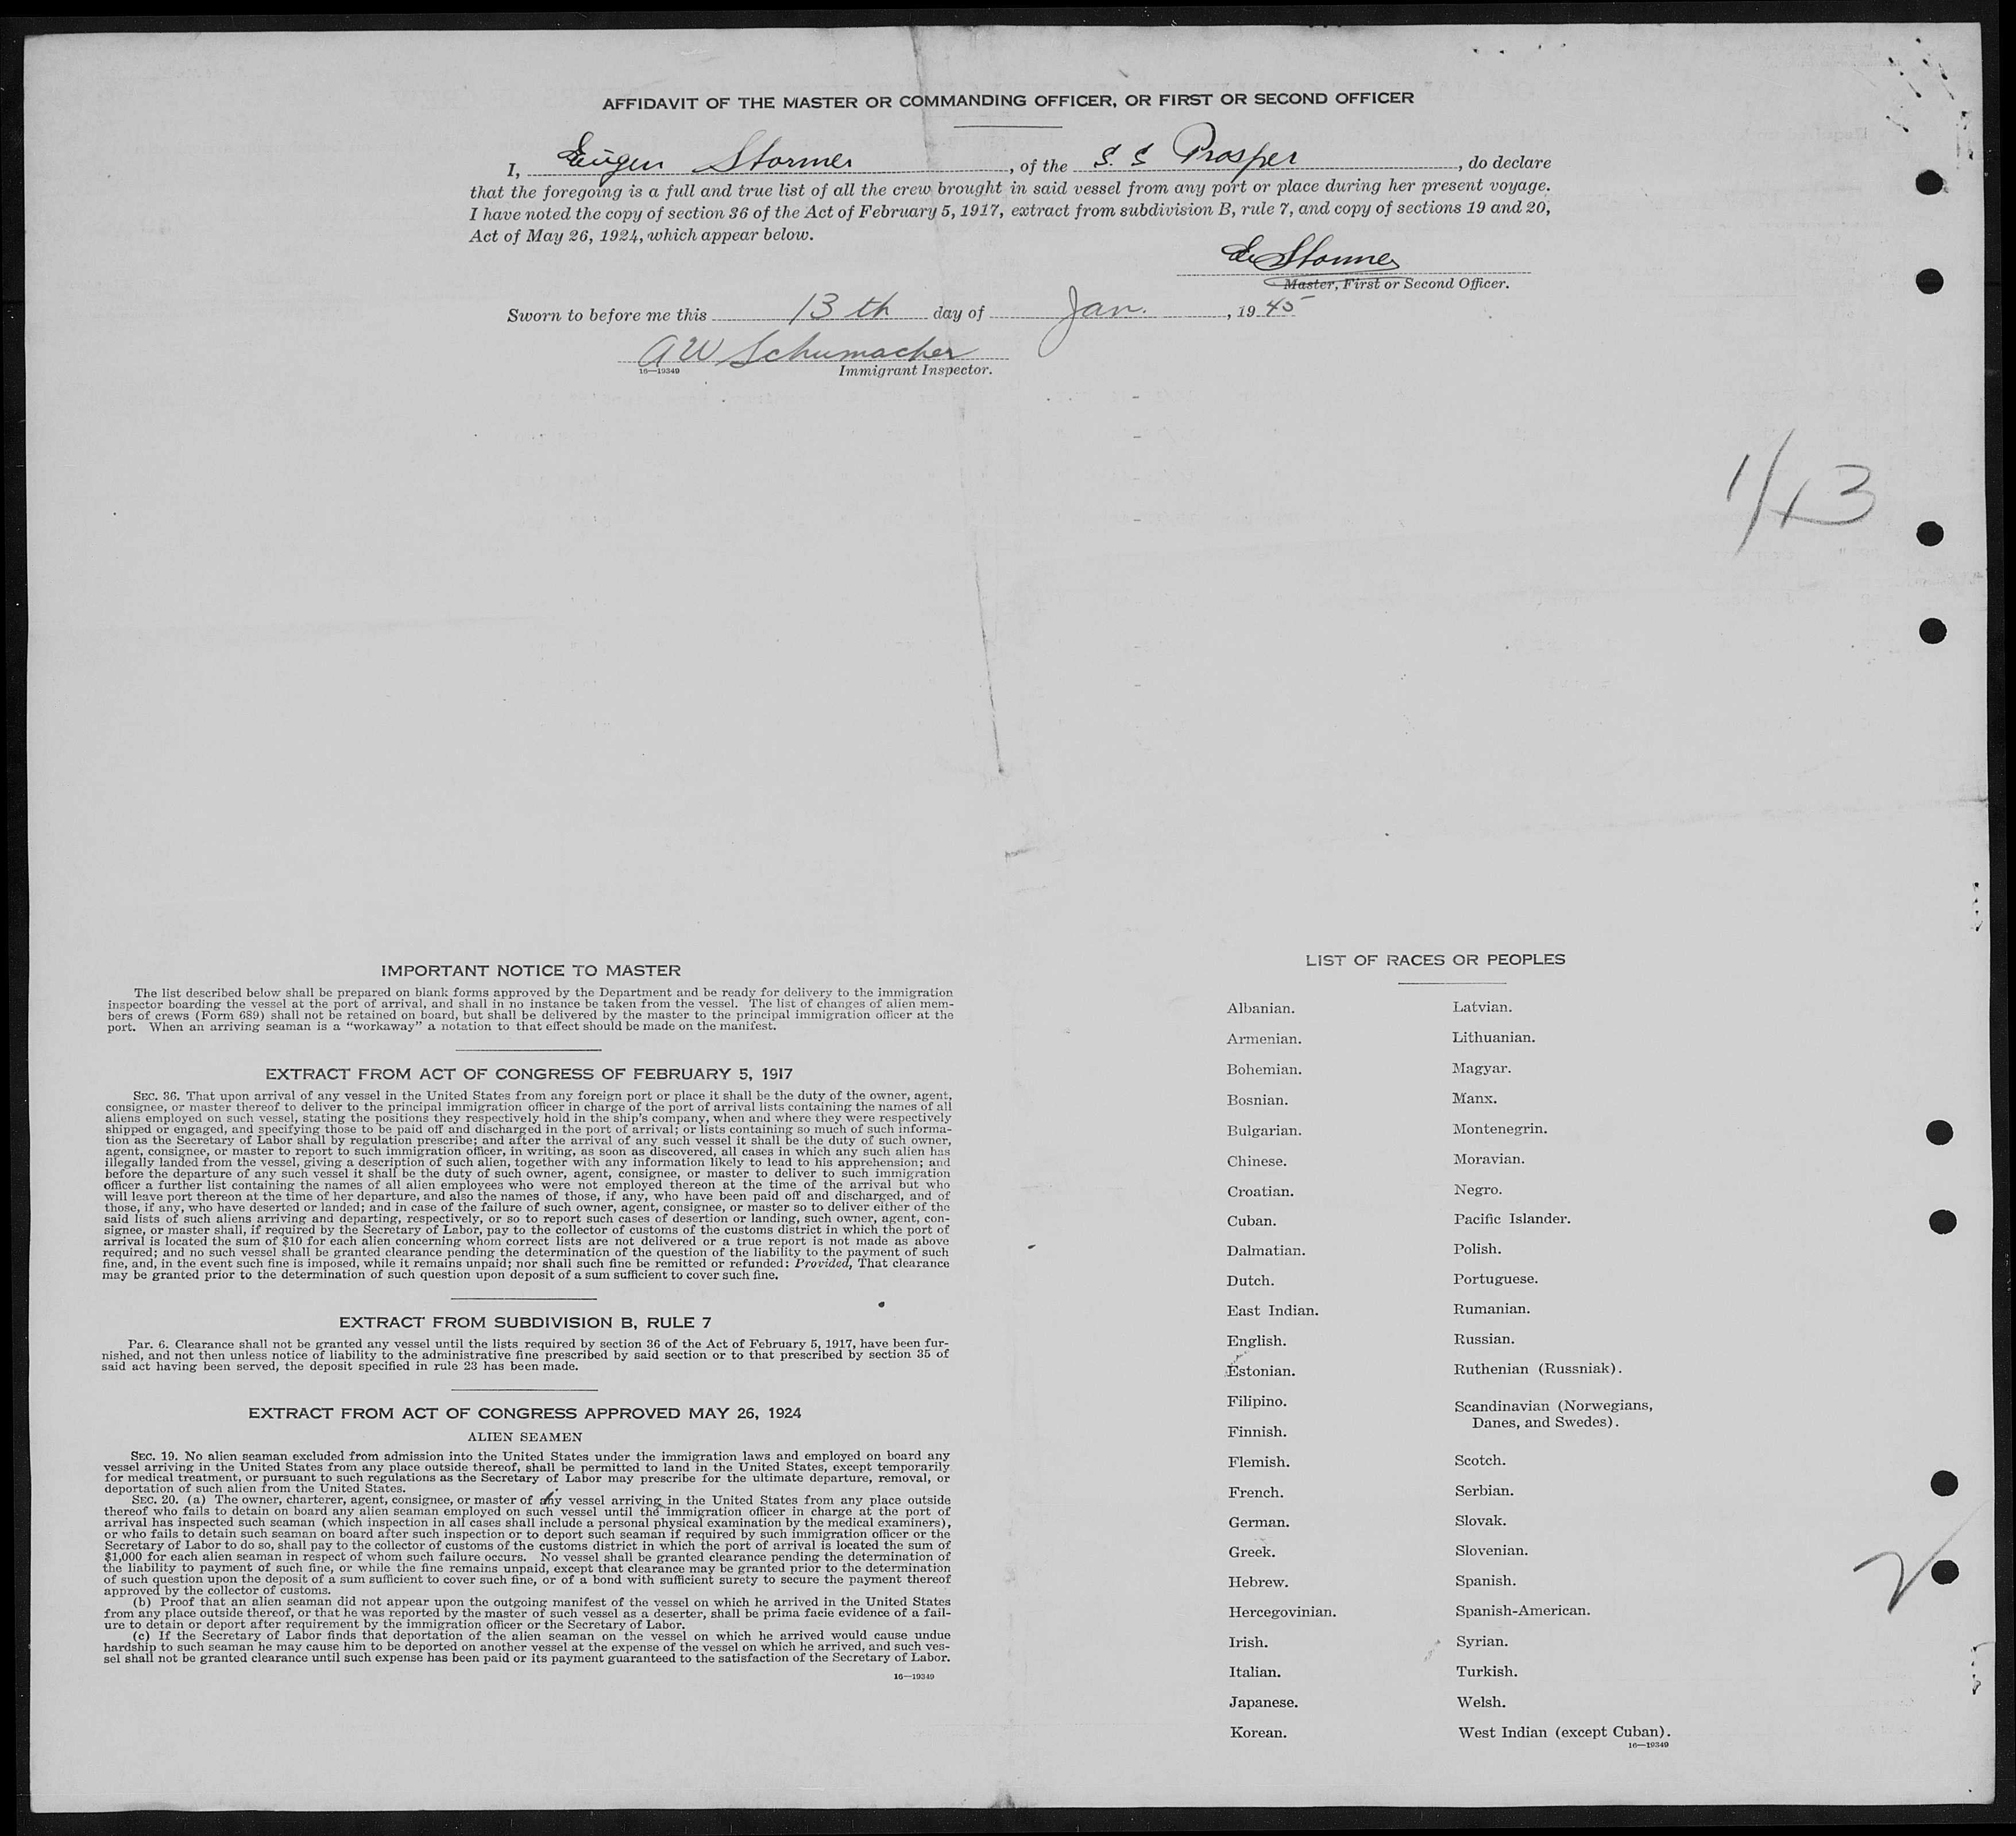 AFFIDAVIT OF THE MASTER OR COMMANDING OFFICER, OR FIRST OR SECOND OFFICER
I, Eugen Stormer, of the S. S Prosper, do declare
that the foregoing is a full and true list of all the crew brought in said vessel from any port or place during her present voyage.
I have noted the copy of section 36 of the Act of February 5, 1917, extract from subdivision B, rule 7, and copy of sections 19 and 20,
Act of May 26, 1924, which appear below.
E. Stormer
Master, First or Second Officer.
Sworn to before me this 13th day of Jan., 1945
A W Schumacher
16—19349 Immigrant Inspector.
1/13
IMPORTANT NOTICE TO MASTER
The list described below shall be prepared on blank forms approved by the Department and be ready for delivery to the immigration
inspector boarding the vessel at the port of arrival, and shall in no instance be taken from the vessel. The list of changes of alien mem-
bers of crews (Form 689) shall not be retained on board, but shall be delivered by the master to the principal immigration officer at the
port. When an arriving seaman is a “workaway” a notation to that effect should be made on the manifest.
EXTRACT FROM ACT OF CONGRESS OF FEBRUARY 5, 1917
SEC. 36. That upon arrival of any vessel in the United States from any foreign port or place it shall be the duty of the owner, agent,
consignee, or master thereof to deliver to the principal immigration officer in charge of the port of arrival lists containing the names of all
aliens employed on such vessel, stating the positions they respectively hold in the ship's company, when and where they were respectively
shipped or engaged, and specifying those to be paid off and discharged in the port of arrival; or lists containing so much of such informa-
tion as the Secretary of Labor shall by regulation prescribe; and after the arrival of any such vessel it shall be the duty of such owner,
agent, consignee, or master to report to such immigration officer, in writing, as soon as discovered, all cases in which any such alien has
illegally landed from the vessel, giving a description of such alien, together with any information likely to lead to his apprehension; and
before the departure of any such vessel it shall be the duty of such owner, agent, consignee, or master to deliver to such immigration
officer a further list containing the names of all alien employees who were not employed thereon at the time of the arrival but who
will leave port thereon at the time of her departure, and also the names of those, if any, who have been paid off and discharged, and of
those, if any, who have deserted or landed; and in case of the failure of such owner, agent, consignee, or master so to deliver either of the
said lists of such aliens arriving and departing, respectively, or so to report such cases of desertion or landing, such owner, agent, con-
signee, or master shall, if required by the Secretary of Labor, pay to the collector of customs of the customs district in which the port of
arrival is located the sum of $10 for each alien concerning whom correct lists are not delivered or a true report is not made as above
required; and no such vessel shall be granted clearance pending the determination of the question of the liability to the payment of such
fine, and, in the event such fine is imposed, while it remains unpaid; nor shall such fine be remitted or refunded: Provided, That clearance
may be granted prior to the determination of such question upon deposit of a sum sufficient to cover such fine.
EXTRACT FROM SUBDIVISION B, RULE 7
Par. 6. Clearance shall not be granted any vessel until the lists required by section 36 of the Act of February 5, 1917, have been fur-
nished, and not then unless notice of liability to the administrative fine prescribed by said section or to that prescribed by section 35 of
said act having been served, the deposit specified in rule 23 has been made.
EXTRACT FROM ACT OF CONGRESS APPROVED MAY 26, 1924
ALIEN SEAMEN
SEC. 19. No alien seaman excluded from admission into the United States under the immigration laws and employed on board any
vessel arriving in the United States from any place outside thereof, shall be permitted to land in the United States, except temporarily
for medical treatment, or pursuant to such regulations as the Secretary of Labor may prescribe for the ultimate departure, removal, or
deportation of such alien from the United States.
SEC. 20. (a) The owner, charterer, agent, consignee, or master of any vessel arriving in the United States from any place outside
thereof who fails to detain on board any alien seaman employed on such vessel until the immigration officer in charge at the port of
arrival has inspected such seaman (which inspection in all cases shall include a personal physical examination by the medical examiners),
or who fails to detain such seaman on board after such inspection or to deport such seaman if required by such immigration officer or the
Secretary of Labor to do so, shall pay to the collector of customs of the customs district in which the port of arrival is located the sum of
$1,000 for each alien seaman in respect of whom such failure occurs. No vessel shall be granted clearance pending the determination of
the liability to payment of such fine, or while the fine remains unpaid, except that clearance may be granted prior to the determination
of such question upon the deposit of a sum sufficient to cover such fine, or of a bond with sufficient surety to secure the payment thereof
approved by the collector of customs.
(b) Proof that an alien seaman did not appear upon the outgoing manifest of the vessel on which he arrived in the United States
from any place outside thereof, or that he was reported by the master of such vessel as a deserter, shall be prima facie evidence of a fail-
ure to detain or deport after requirement by the immigration officer or the Secretary of Labor.
(c) If the Secretary of Labor finds that deportation of the alien seaman on the vessel on which he arrived would cause undue
hardship to such seaman he may cause him to be deported on another vessel at the expense of the vessel on which he arrived, and such ves-
sel shall not be granted clearance until such expense has been paid or its payment guaranteed to the satisfaction of the Secretary of Labor.
16—19349
LIST OF RACES OR PEOPLES
Albanian.
Armenian.
Bohemian.
Bosnian.
Bulgarian.
Chinese.
Croatian.
Cuban.
Dalmatian.
Dutch.
East Indian.
English.
Estonian.
Filipino.
Finnish.
Flemish.
French.
German.
Greek.
Hebrew.
Hercegovinian.
Irish.
Italian.
Japanese.
Korean.
Latvian.
Lithuanian.
Magyar.
Manx.
Montenegrin.
Moravian.
Negro.
Pacific Islander.
Polish.
Portuguese.
Rumanian.
Russian.
Ruthenian (Russniak).
Scandinavian (Norwegians,
Danes, and Swedes).
Scotch.
Serbian.
Slovak.
Slovenian.
Spanish.
Spanish-American.
Syrian.
Turkish.
Welsh.
West Indian (except Cuban).
16—19349